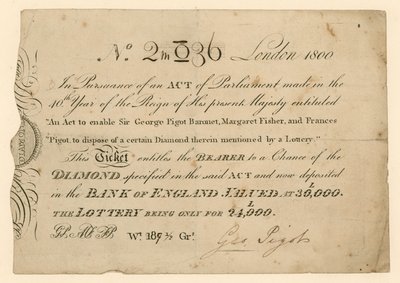 No. 2m 036 London 1800
In Pursuance of an ACT of Parliament made in the
40th Year of the Reign of His present Majesty entituled
"An Act to enable Sir George Pigot Baronet, Margaret Fisher, and Frances
"Pigot, to dispose of a certain Diamond therein mentioned by a Lottery."
This Ticket entitles the BEARER to a Chance of the
DIAMOND specified in the said ACT and now deposited
in the BANK OF ENGLAND VALUED AT £30,000.
THE LOTTERY BEING ONLY FOR £24,000.
Wt. 187½ Grs.
Geo Pigot